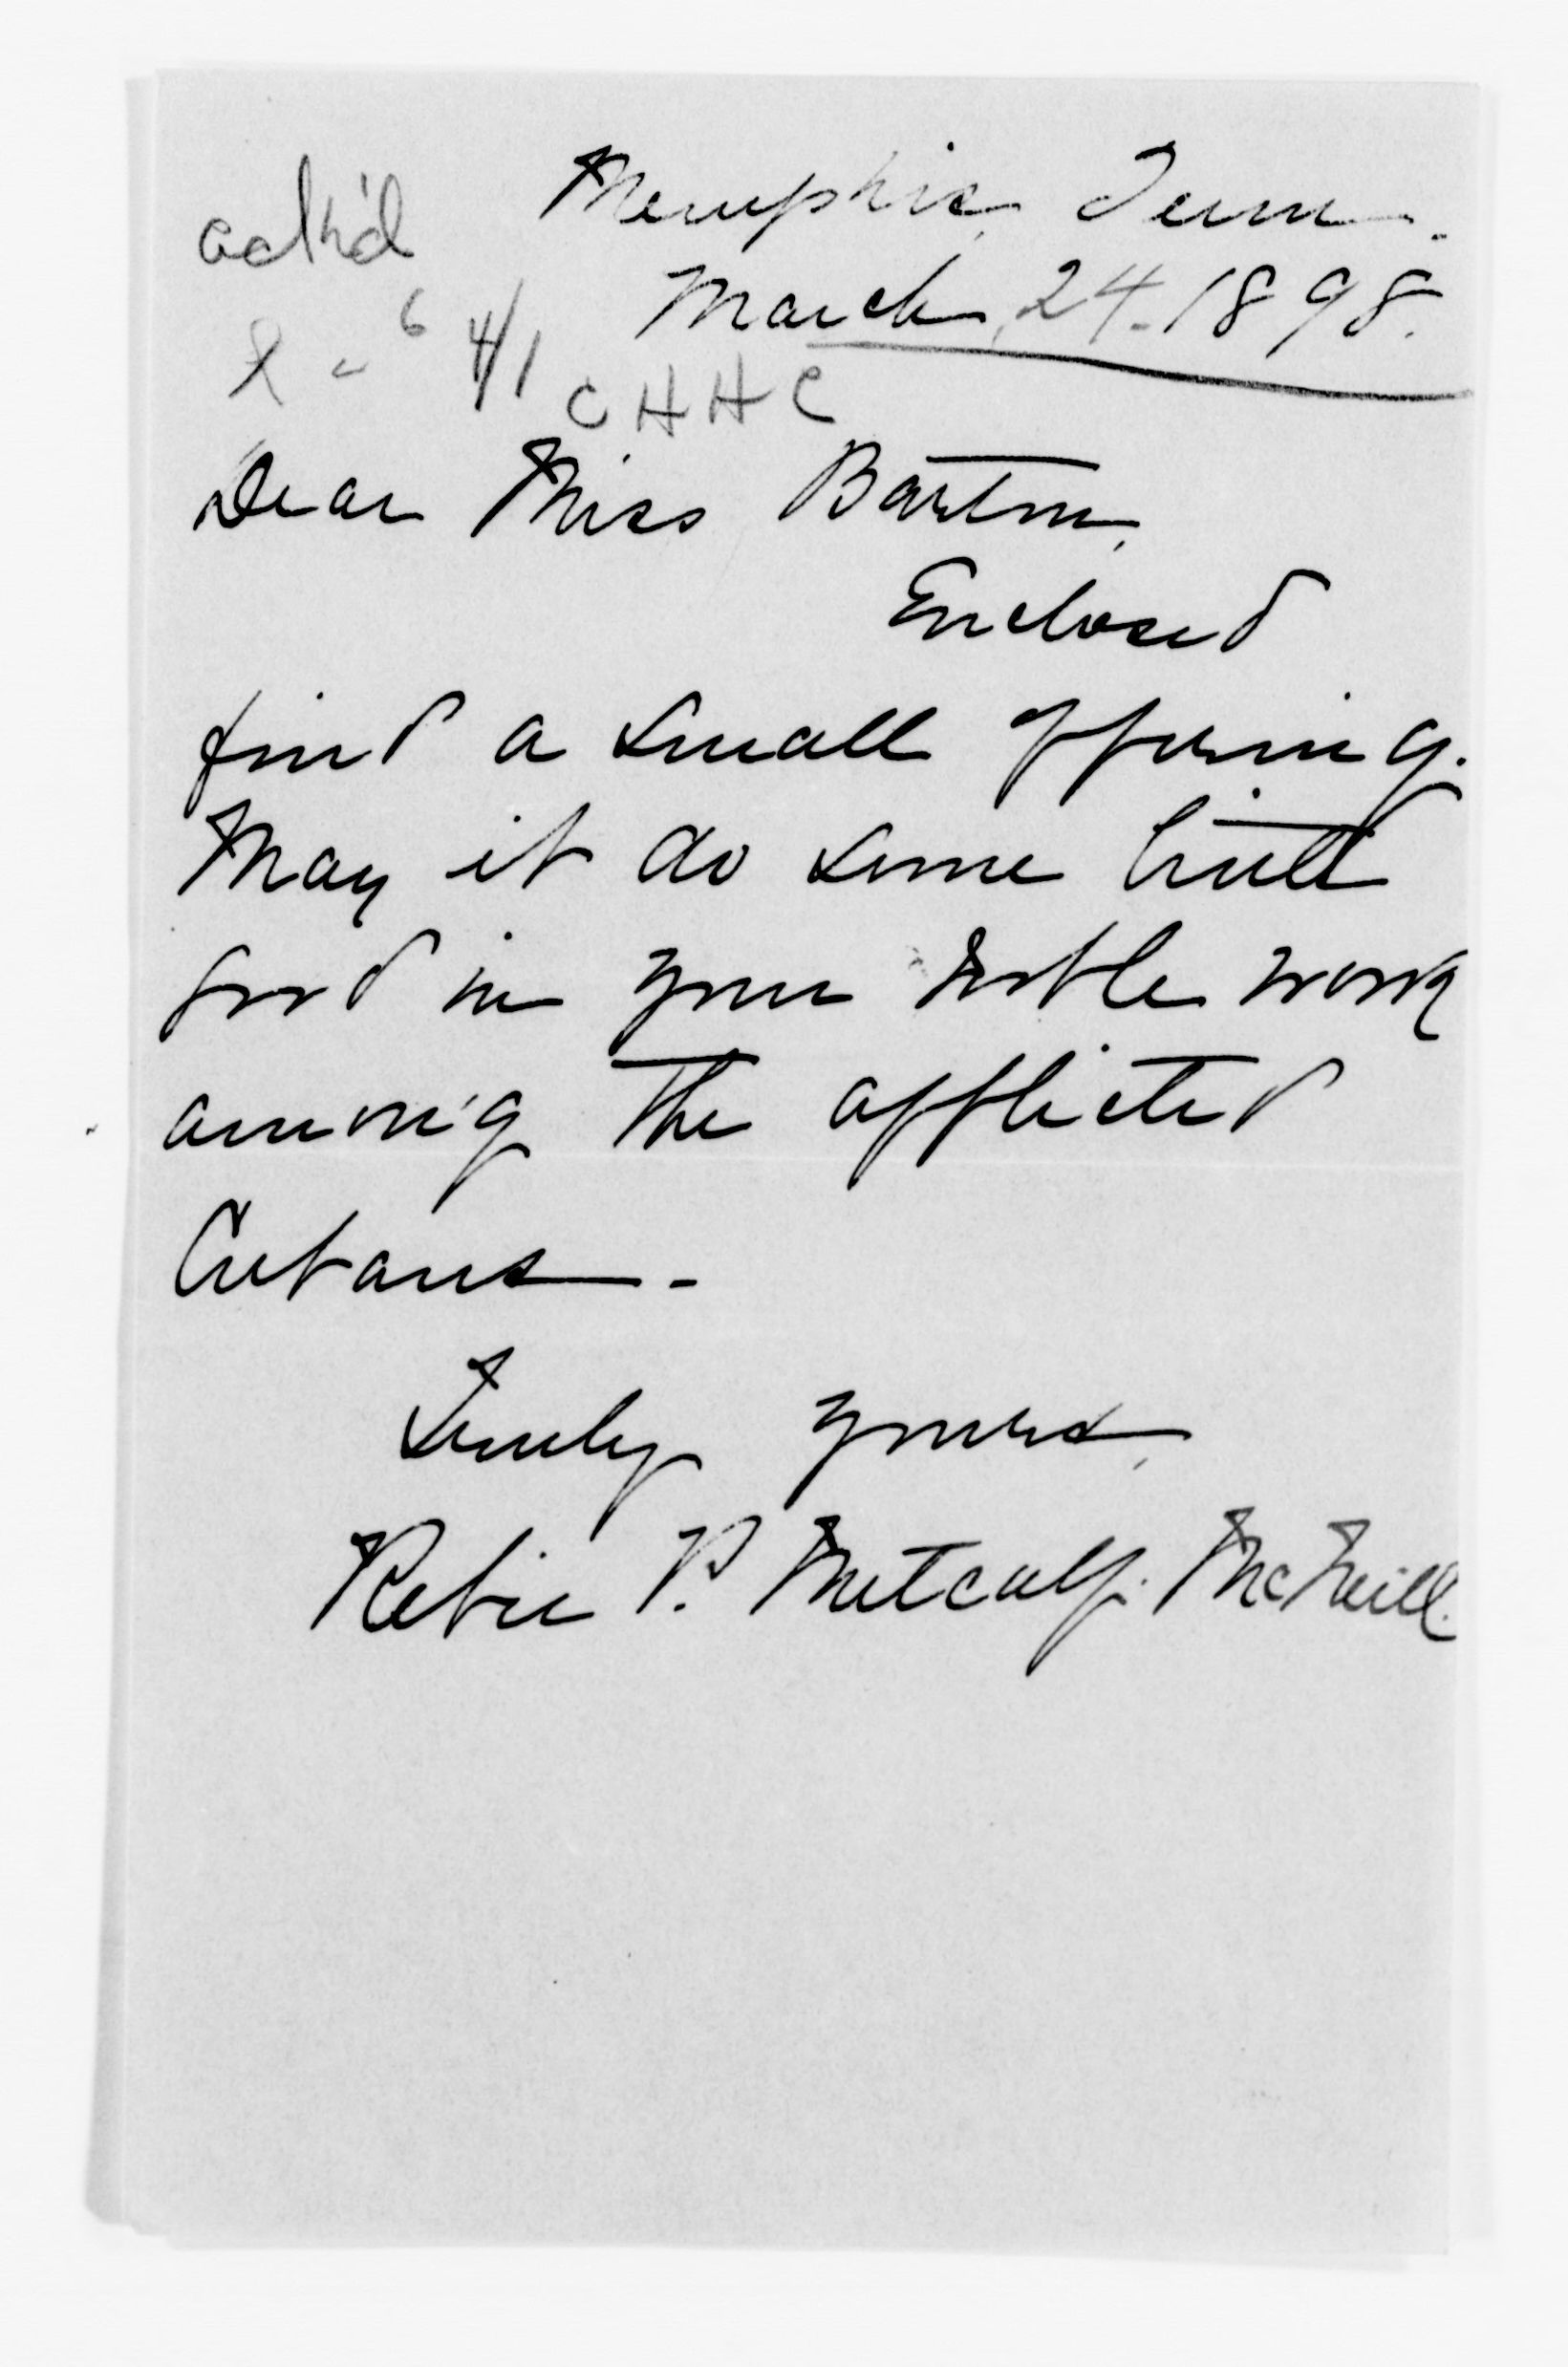 Memphis, Tenn.
ack'd
March, 24. 1898.
4/1 CHHC
Dear Miss Barton,
Enclosed
find a small offering.
May it do some little
good in your noble work
among the afflicted
Cubans -
Truly yours,
P. Metcalf. McNeill.